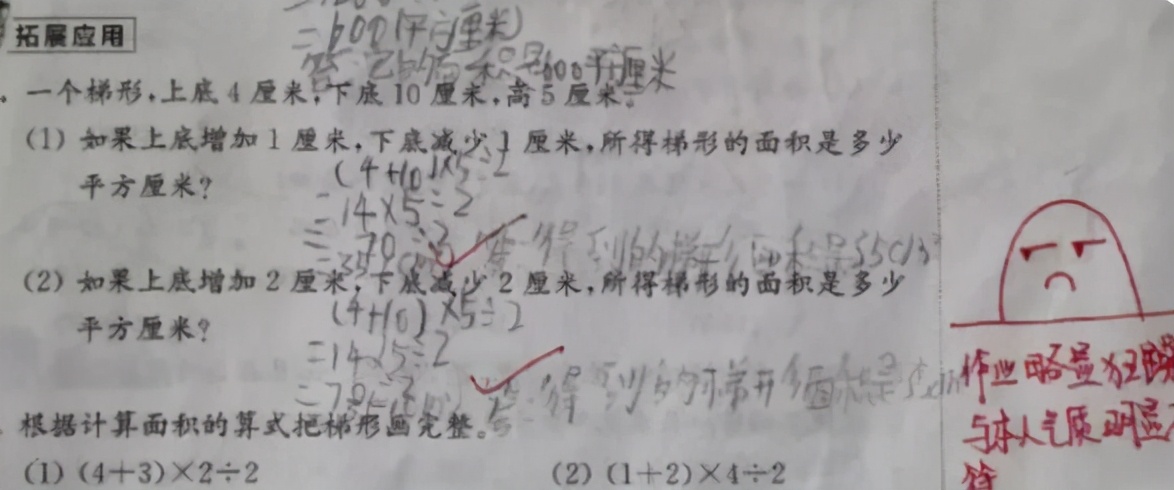 =600(平方厘米)
拓展应用
答:它的面积是600平方厘米
一个梯形,上底4厘米,下底10厘米,高5厘米。
(1) 如果上底增加1厘米,下底减少1厘米,所得梯形的面积是多少
(4+10)×5÷2
平方厘米?
=14×5÷2
=70÷2
答:得到的梯形面积是35cm²
(2) 如果上底增加2厘米,下底减少2厘米,所得梯形的面积是多少
(4+10)×5÷2
平方厘米?
=14×5÷2
答:得到的梯形面积是
作业略显狂躁
与本人气质明显不
符
根据计算面积的算式把梯形画完整。
(1) (4+3)×2÷2
(2) (1+2)×4÷2